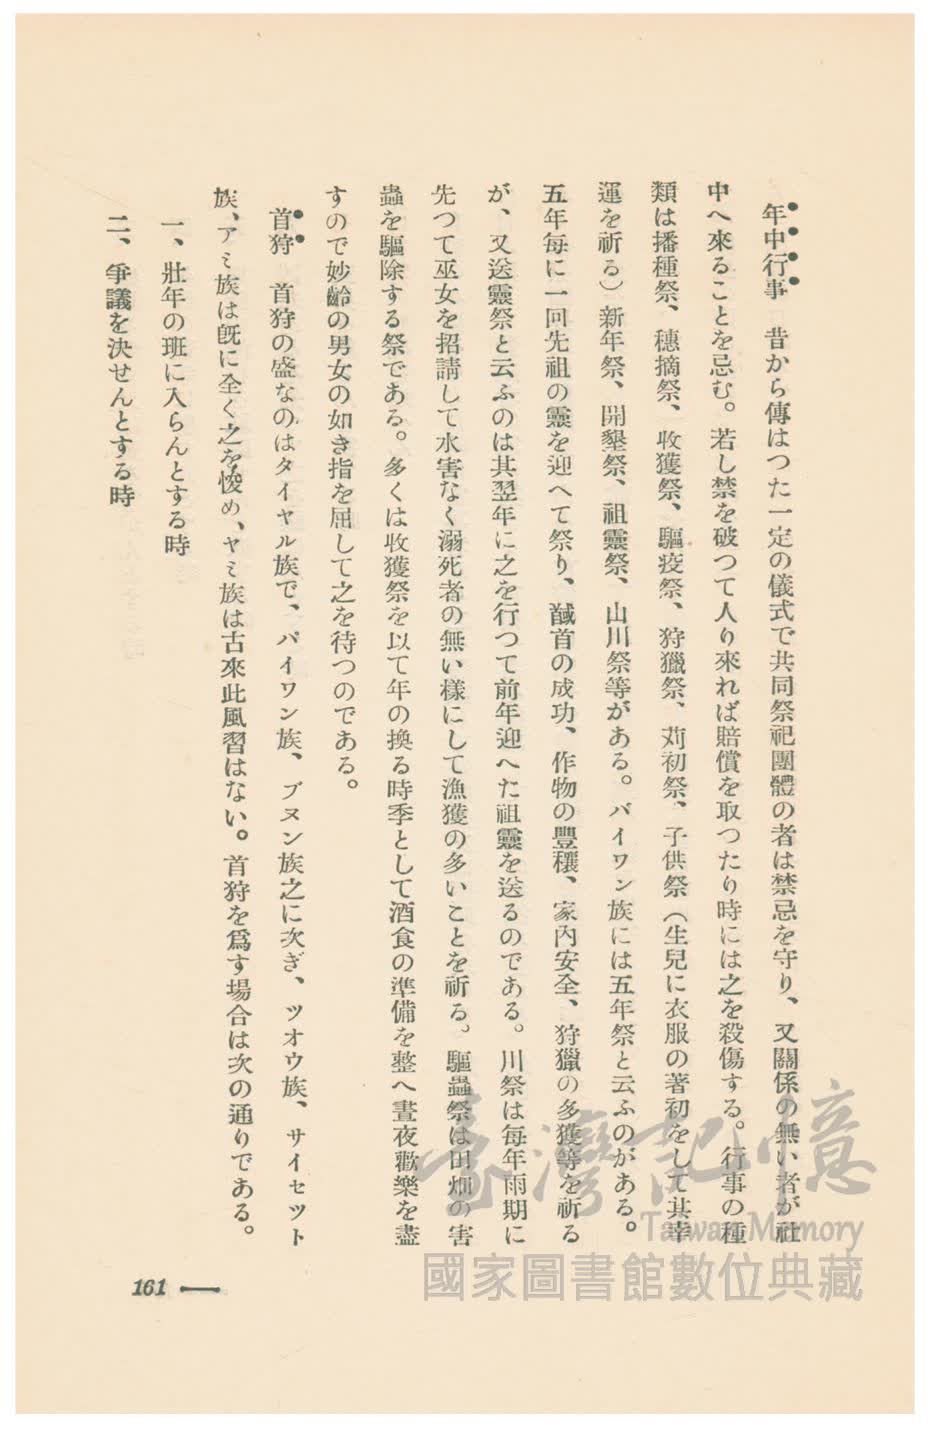 年中行事　昔から傳はつた一定の儀式で共同祭祀團體の者は禁忌を守り、又關係の無い者が社
中へ來ることを忌む。若し禁を破つて入り來れば賠償を取つたり時には之を殺傷する。行事の種
類は播種祭、穗摘祭、收獲祭、驅疫祭、狩獵祭、苅初祭、子供祭（生兒に衣服の著初をして其幸
運を祈る）新年祭、開墾祭、祖靈祭、山川祭等がある。パイワン族には五年祭と云ふのがある。
五年每に一回先祖の靈を迎へて祭り、馘首の成功、作物の豐穰、家內安全、狩獵の多獲等を祈る
が、又送靈祭と云ふのは其翌年に之を行つて前年迎へた祖靈を送るのである。川祭は每年雨期に
先つて巫女を招請して水害なく溺死者の無い樣にして漁獲の多いことを祈る。驅蟲祭は田畑の害
蟲を驅除する祭である。多くは收獲祭を以て年の換る時季として酒食の準備を整へ晝夜歡樂を盡
すので妙齡の男女の如き指を屈して之を待つのである。
首狩　首狩の盛なのはタイヤル族で、パイワン族、ブヌン族之に次ぎ、ツオウ族、サイセツト
族、アミ族は旣に全く之を悛め、ヤミ族は古來此風習はない。首狩を爲す場合は次の通りである。
一、壯年の班に入らんとする時
二、爭議を決せんとする時
161
臺灣記憶
Taiwan Memory
國家圖書館數位典藏